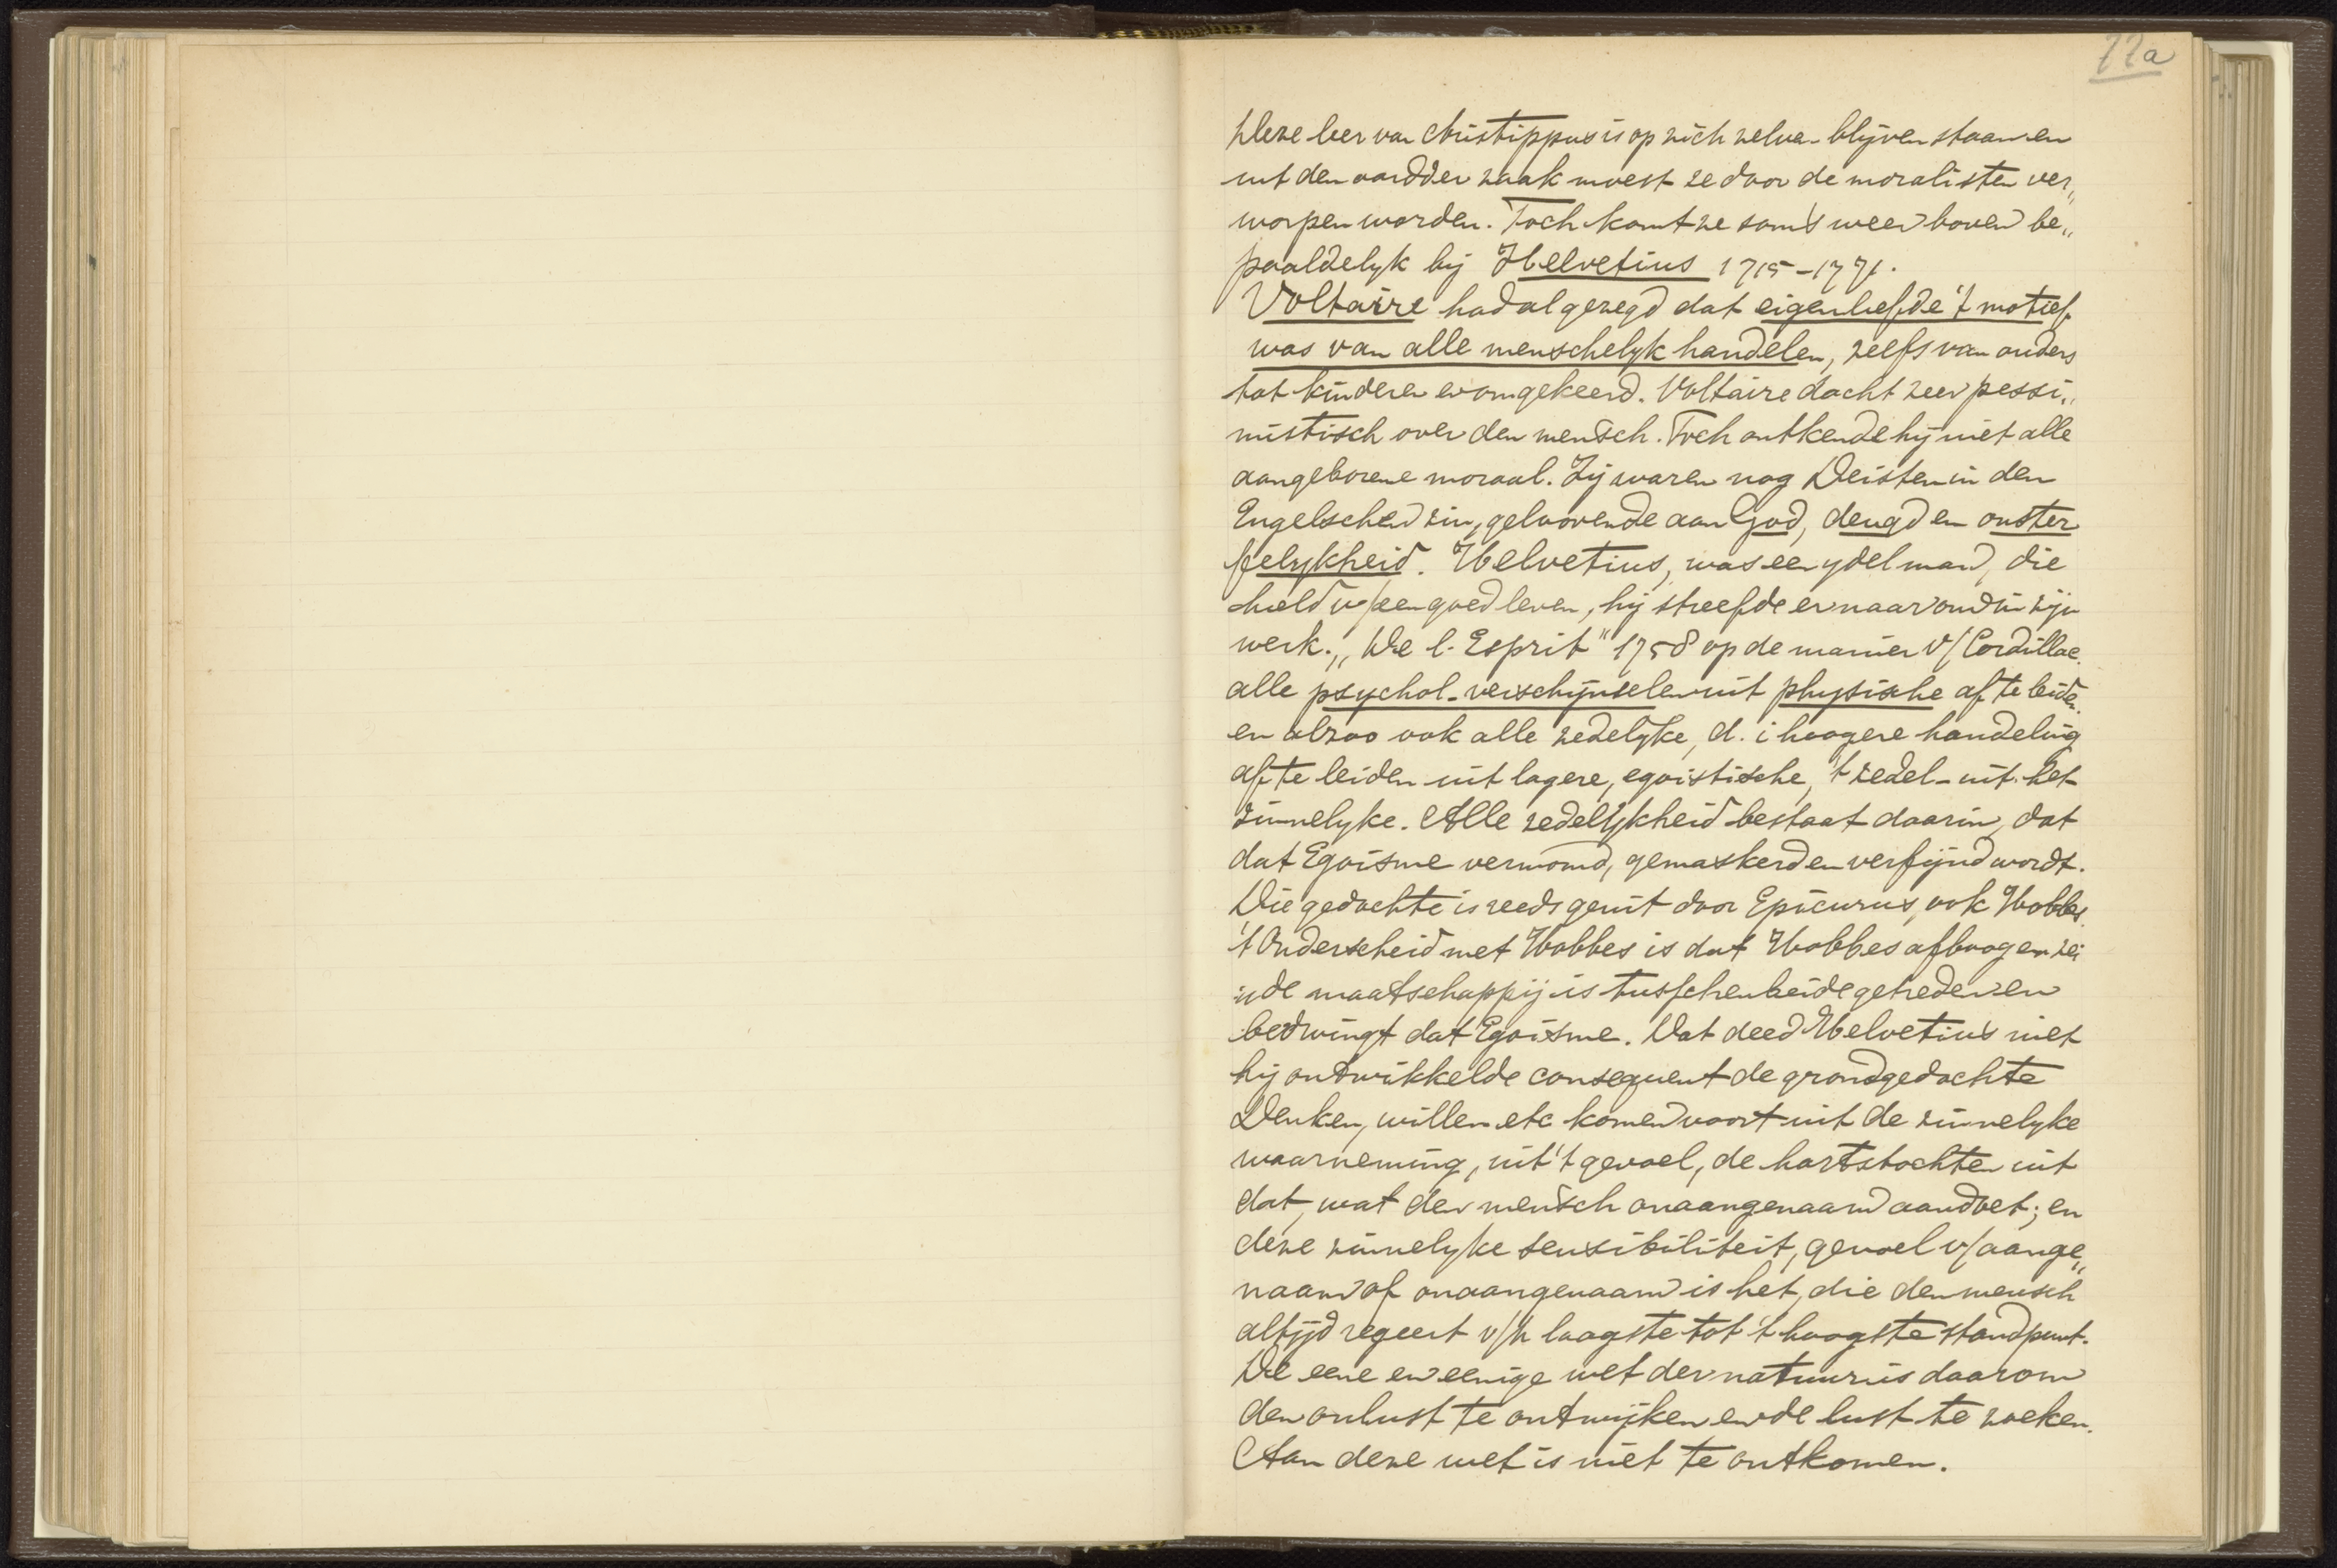 22a
Deze leer van Aristippus is op zich zelve blijven staan en
uit den aard der zaak moest ze door de moralisten ver„
worpen worden. Toch komt ze soms weer boven be„
paaldelyk bij Helvetius 1715-1771.
Voltaire had al gezegd dat eigenliefde 't motief
was van alle menschelyk handelen, zelfs van ouders
tot kinderen en omgekeerd. Voltaire dacht zeer pessi„
mistisch over den mensch. Toch ontkende hij niet alle
aangeborene moraal. Zij waren nog Deisten in den
Engelschen zin, geloovende aan God, deugd en onster
felykheid. Helvetius, was een ydel man, die
hield v/ een goed leven, hij streefde er naar om in zijn
werk „De l'Esprit" 1758 op de manier v/ Condillac
alle psychol. verschijnselen uit physische af te leiden.
en alzoo ook alle zedelyke, d. i hoogere handeling
af te leiden uit lagere, egoistische, 't zedel. uit het
zinnelyke. Alle zedelijkheid bestaat daarin, dat
dat Egoisme vermomd, gemaskerd en verfijnd wordt.
Die gedachte is reeds geuit door Epicurus, ook Hobbes.
't Onderscheid met Hobbes is dat Hobbes afboog en zei
de maatschappij is tusschenbeide getreden en
bedwingt dat Egoisme. Dat deed Helvetius niet
hij ontwikkelde consequent de grondgedachte
Denken, willen etc komen voort uit de zinnelyke
waarneming, uit 't gevoel, de hartstochten uit
dat, wat den mensch onaangenaam aandoet; en
deze zinnelyke sensibiliteit, gevoel v/ aange„
naam of onaangenaam is het, die den mensch
altijd regeert v/h laagste tot 't hoogste standpunt.
De eene en eenige wet der natuur is daarom
den onlust te ontwijken en de lust te zoeken.
Aan deze wet is niet te ontkomen.